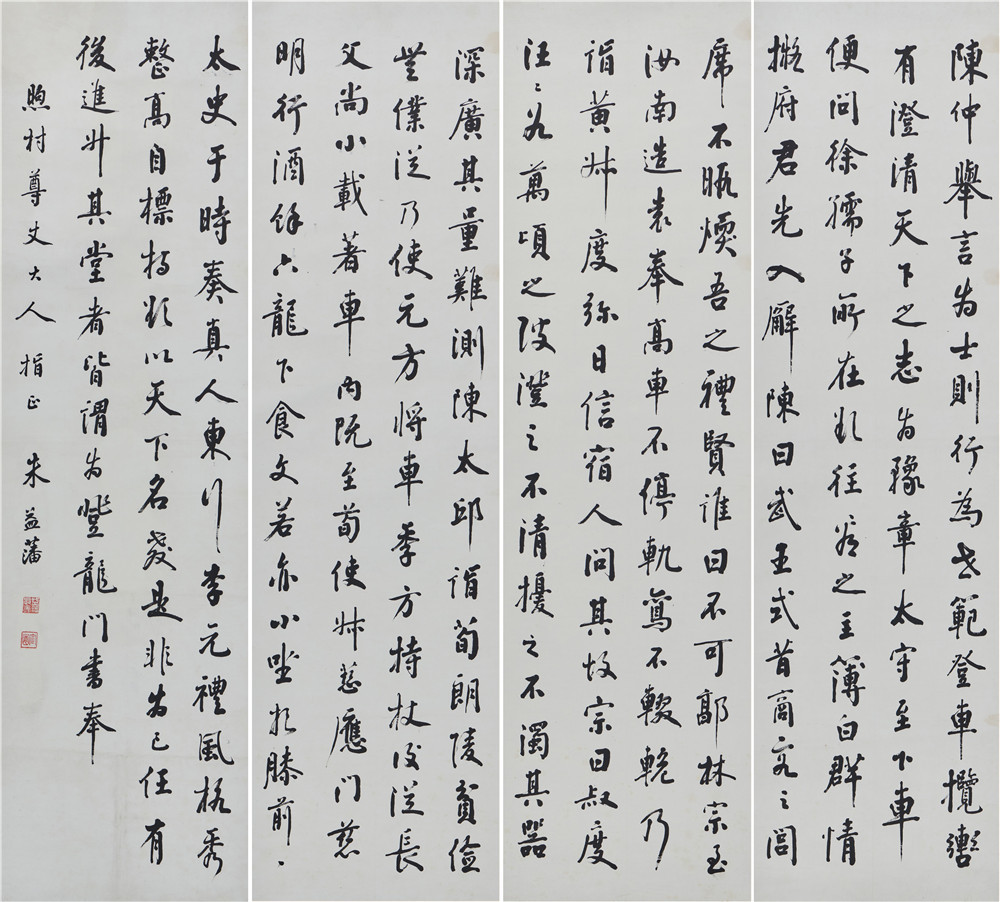 陳仲舉言为士則行為世範登車攬轡
有澄清天下之志为豫章太守至下車
便問徐孺子所在欲往看之主簿白群情
擬府君先入廨陳曰武王式昔商容之閭
席不暇煗吾之禮賢誰曰不可鄣林宗至
汝南造袁奉高車不停軌鸞不輟軶乃
詣黄叔度弥日信宿人問其故宗曰叔度
汪〻若萬頃之陂澄之不清擾之不濁其器
深廣其量難測陳太邱詣荀朗陵貧儉
無僕從乃使元方將車季方持杖後從長
文尚小載著車内既至荀使叔慈應門慈
明行酒餘六龍下食文若亦小坐於膝前〻
太史于時奏真人東行李元禮風格秀
整高自標持欲以天下名教是非为己任有
後進升其堂者皆謂为登龍门書奉
煦村尊丈大人 指正 朱益藩